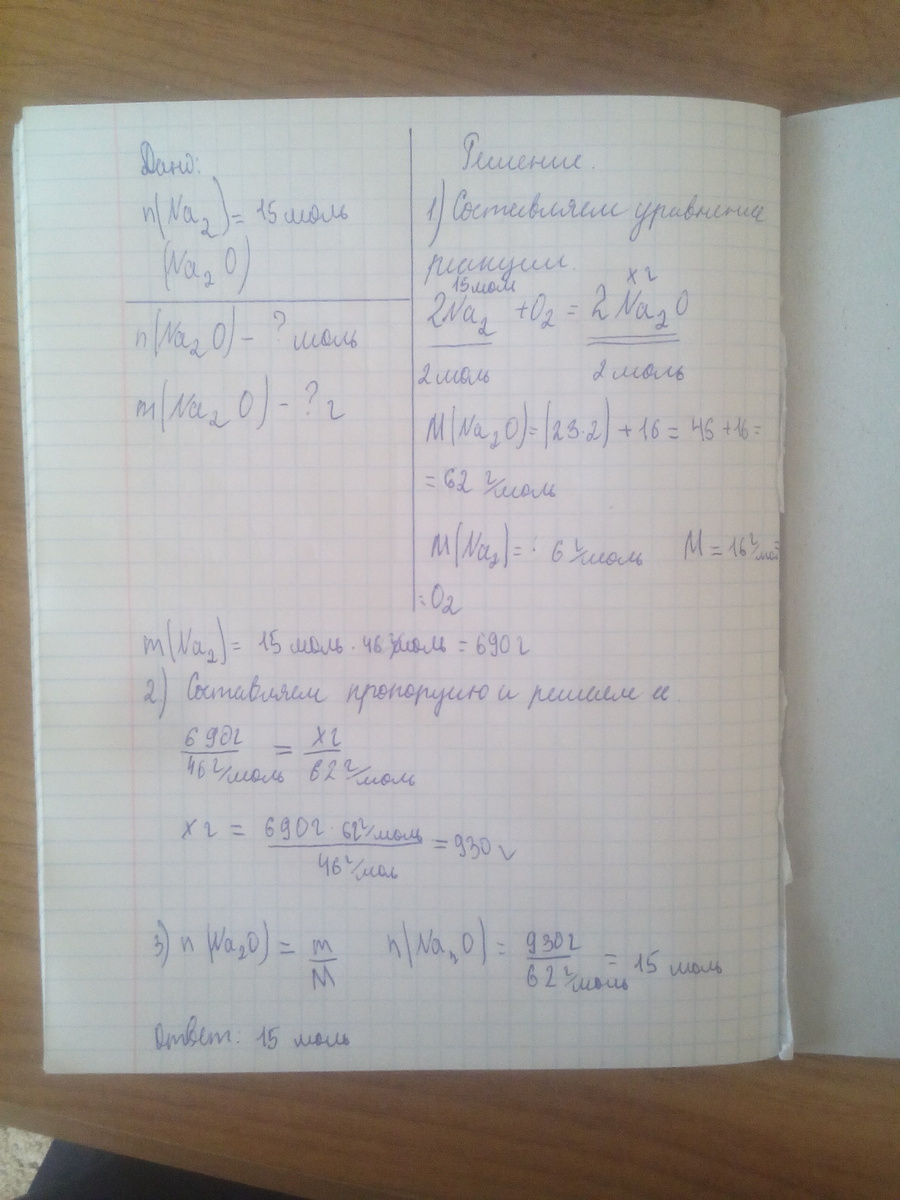 Дано:
n(Na₂) = 15 моль
(Na₂O)
n(Na₂O) - ? моль
m(Na₂O) - ? г
Решение.
1) Составляем уравнение
реакции.
15 мол х г
2Na₂ + O₂ = 2Na₂O
2 моль 2 моль
M(Na₂O) = (23·2) + 16 = 46 + 16 =
= 62 г/моль
M(Na₂) = 6 г/моль M = 16 г/мол
= O₂
m(Na₂) = 15 моль · 46 г/моль = 690 г
2) Составляем пропорцию и решаем ее
690г / 46 г/моль = хг / 62 г/моль
х г = 690г · 62 г/моль / 46 г/мол = 930 г
3) n(Na₂O) = m / M n(Na₂O) = 930 г / 62 г/моль = 15 моль
Ответ: 15 моль